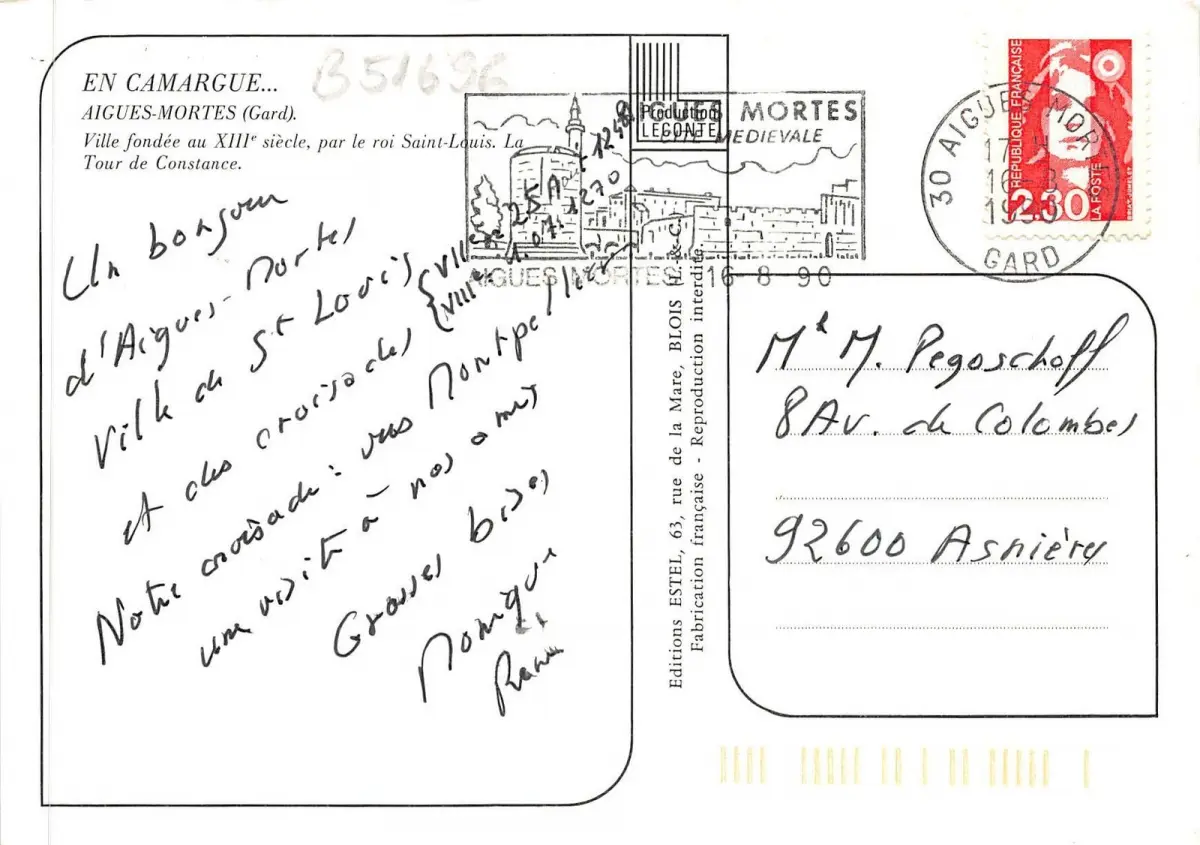 B51696
EN CAMARGUE...
AIGUES-MORTES (Gard).
Ville fondée au XIIIᵉ siècle, par le roi Saint-Louis. La
Tour de Constance.
Un bonjour
d'Aigues-Mortes
Ville de St Louis
et des croisades { VIIᵉ 25 Août 1248
VIIIᵉ 1.07.1270
Notre croisade : vers Montpellier
une visite à nos amis
Grosses bises
Monique
et
Production
LECONTE
AIGUES MORTES
CITE MEDIEVALE
AIGUES MORTES 16-8-90
30 AIGUES MORTES
17 H
16-8
1990
GARD
REPUBLIQUE FRANÇAISE
2.30
LA POSTE
Editions ESTEL, 63, rue de la Mare, BLOIS (L.-&-C.)
Fabrication française - Reproduction interdite
M. Pegoschoff
8 Av. de Colombes
92600 Asnières